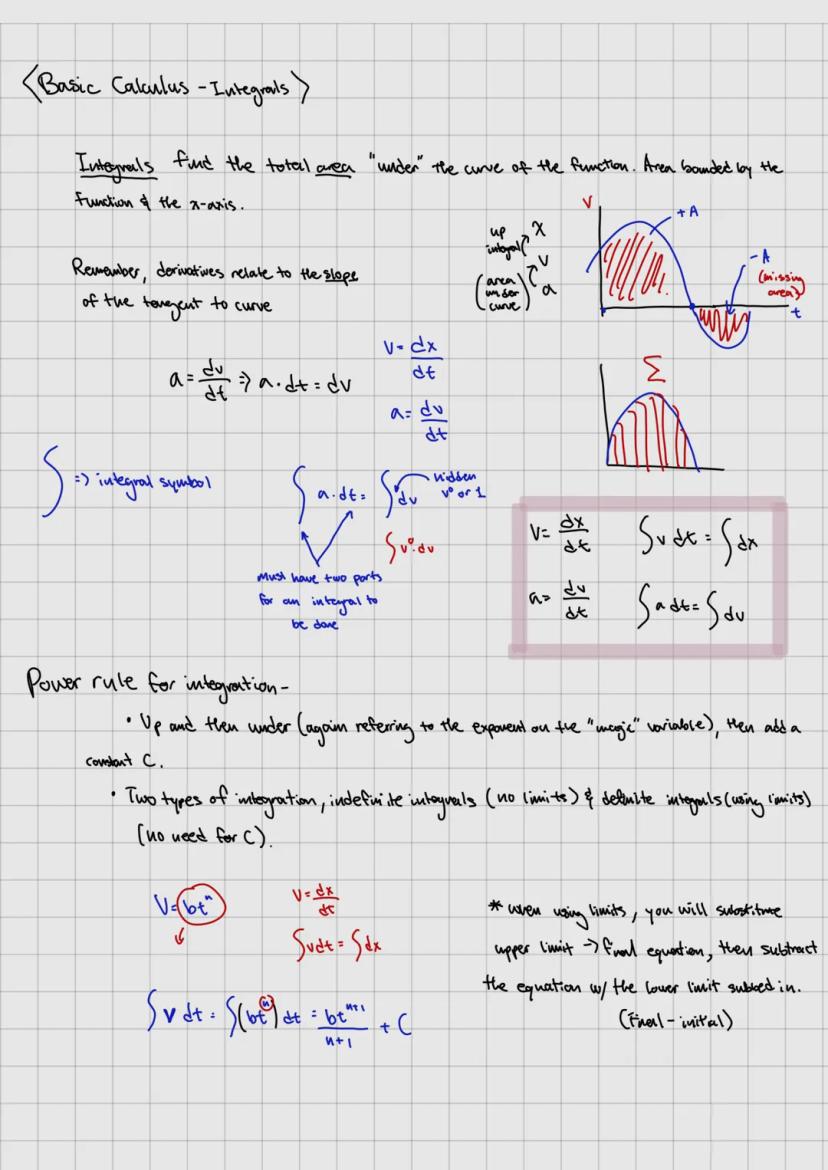 <Basic Calculus - Integrals>
Integrals find the total area "under" the curve of the function. Area bounded by the
function & the x-axis.
Remember, derivatives relate to the slope
of the tangent to curve
up
integral
x
v
a
(area
under
curve)
V
+A
-A
(missing
area)
t
a = dv/dt => a·dt = dv
v = dx/dt
a = dv/dt
Σ
∫ => integral symbol
∫ a·dt = ∫ dv
hidden
v⁰ or 1
∫ v⁰·dv
Must have two parts
for an integral to
be done
V = dx/dt ∫ v dt = ∫ dx
a = dv/dt ∫ a dt = ∫ dv
Power rule for integration-
• Up and then under (again referring to the exponent on the "magic" variable), then add a
constant C.
• Two types of integration, indefinite integrals (no limits) & definite integrals (using limits)
(no need for C).
V = btⁿ
V = dx/dt
∫ v dt = ∫ dx
∫ v dt = ∫ (btⁿ) dt = btⁿ⁺¹/n+1 + C
* when using limits, you will substitute
upper limit → final equation, then subtract
the equation w/ the lower limit subbed in.
(Final - initial)